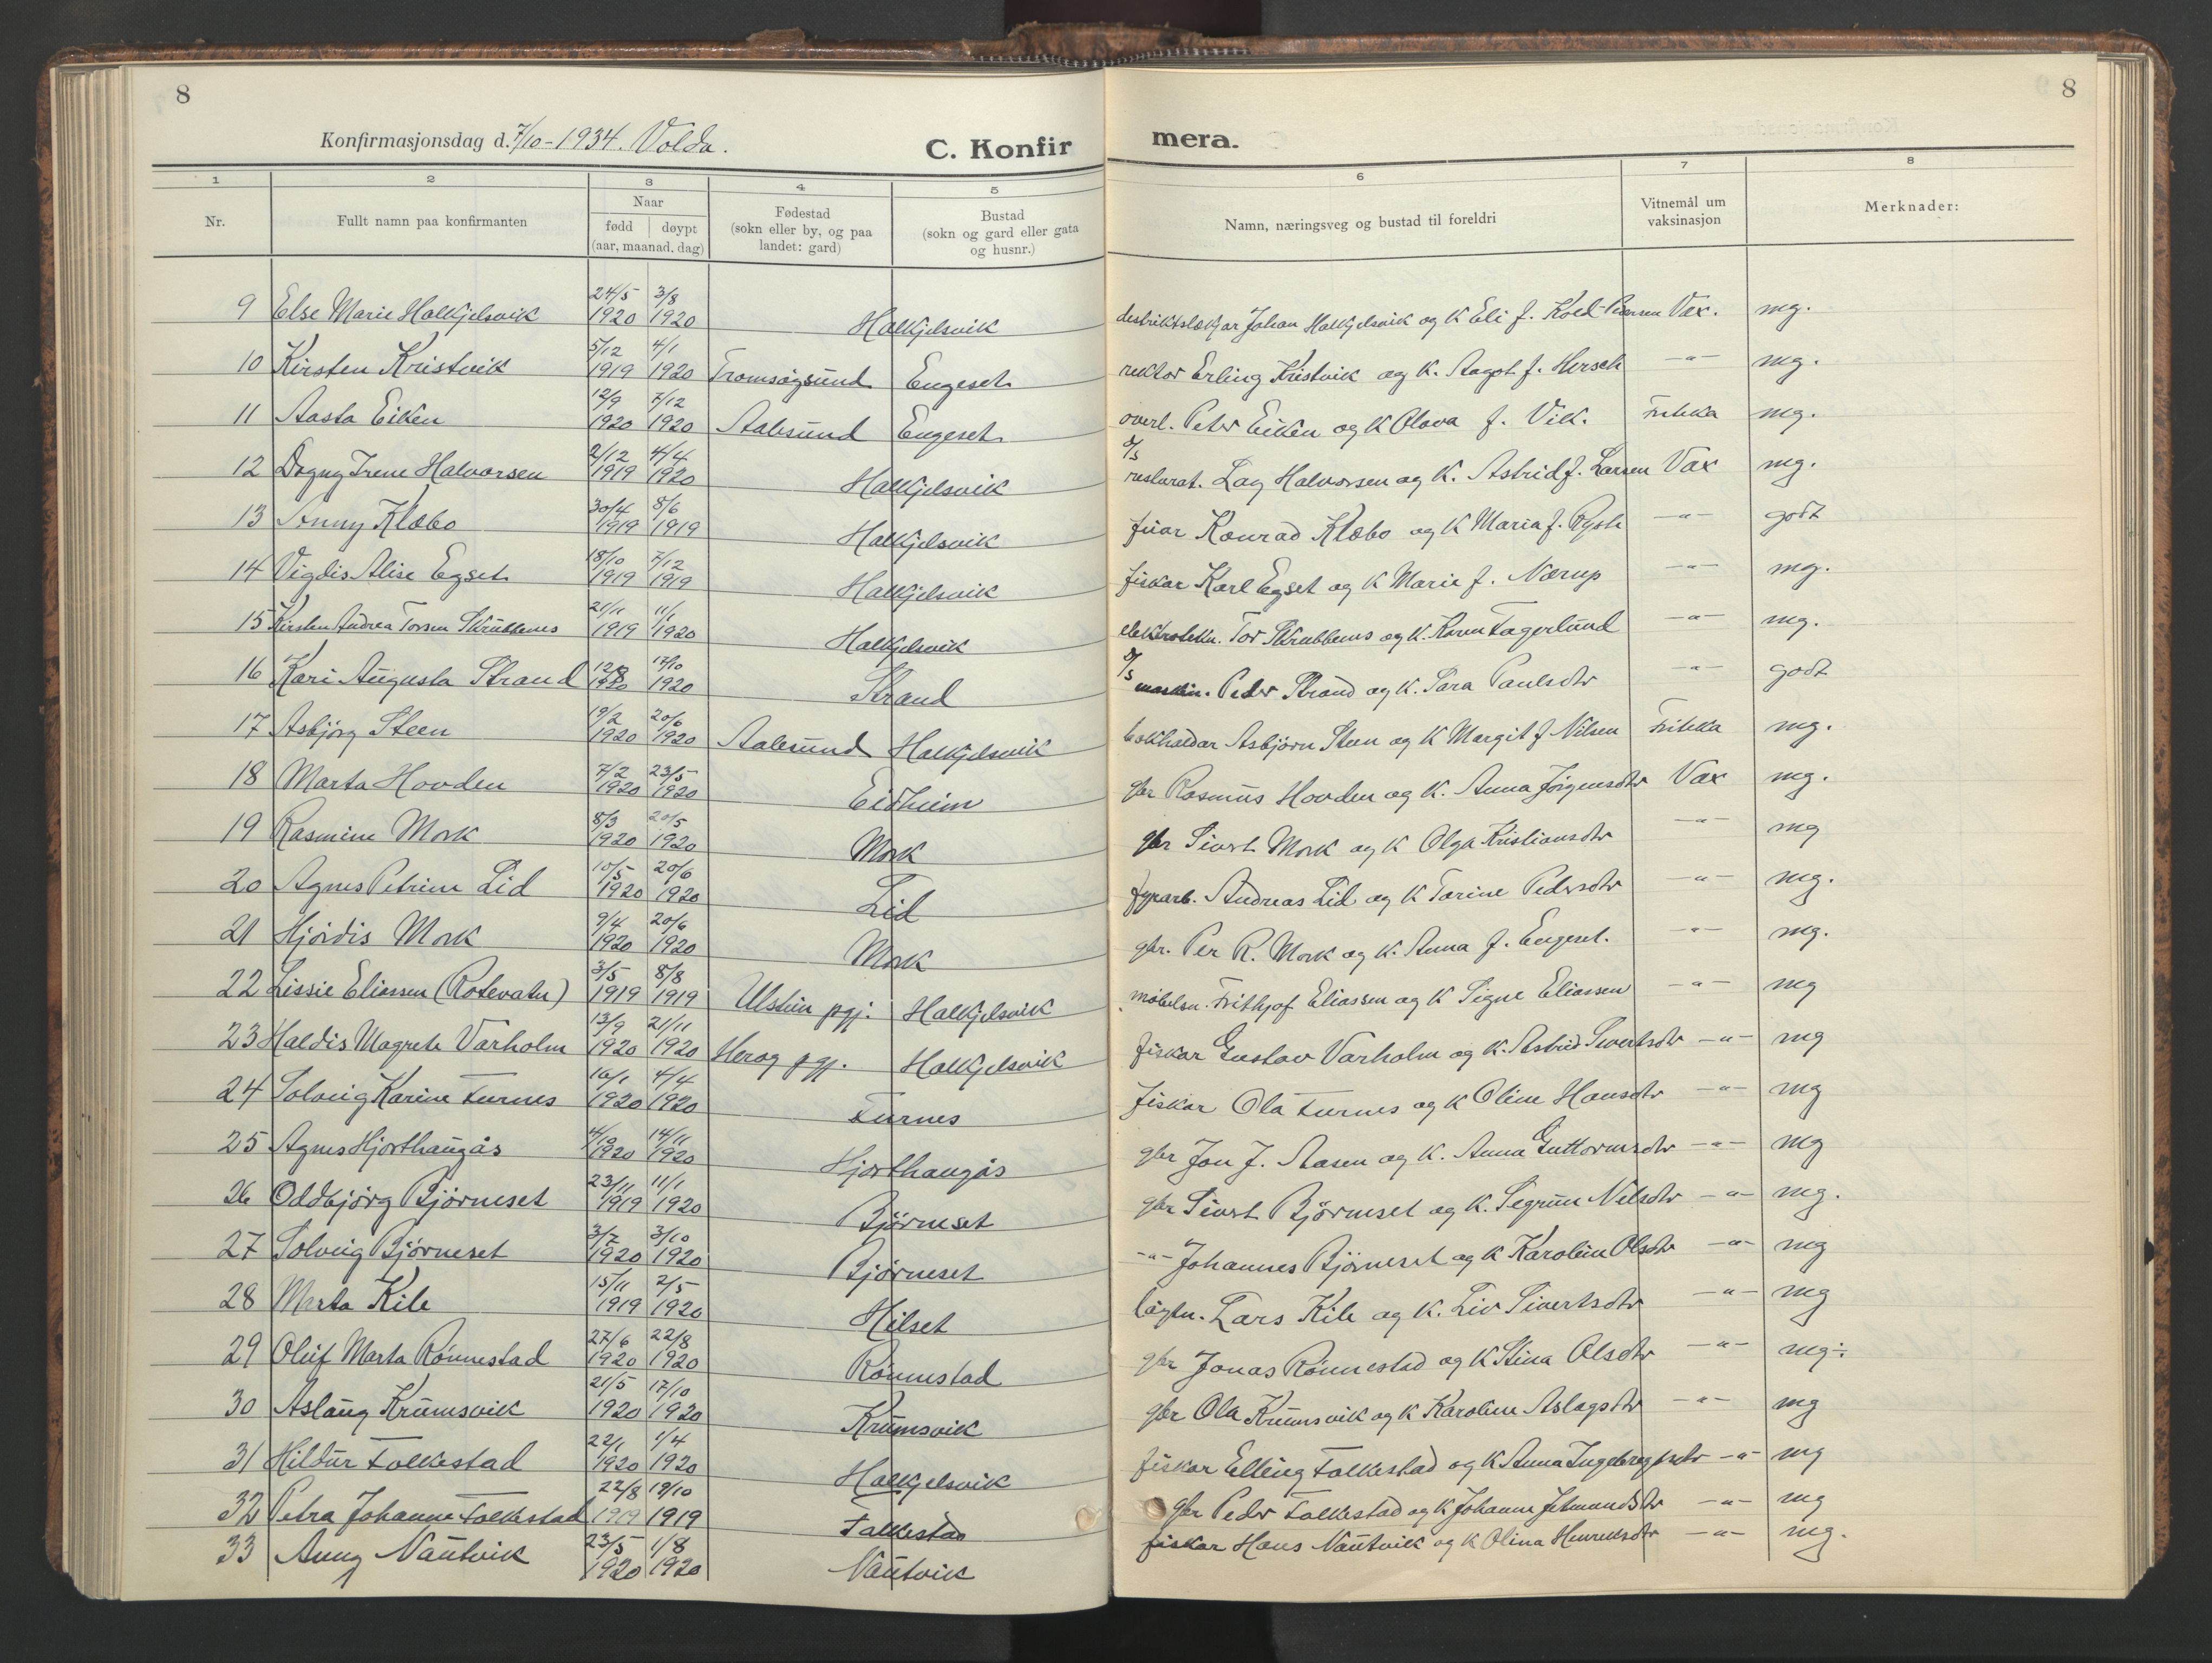 8
8
Konfirmasjonsdag d. 7/10-1934. Volda.
C. Konfir mera.
1 2 3 4 5 6 7 8
Nr. Fullt namn paa konfirmanten Naar fødd døypt (aar, maanad, dag) Fødestad (sokn eller by, og paa landet: gard) Bustad (sokn og gard eller gata og husnr.) Namn, næringsveg og bustad til foreldri Vitnemål um vaksinasjon Merknader:
9 Else Marie Halkjelsvik 24/5 1920 3/8 1920 Halkjelsvik Johan Halkjelsvik og K Eli f. Vax. mg.
10 Kirsten Kristvik 5/12 1919 4/1 1920 Tromsøysund Engeset rektor Erling Kristvik og K. Aagot f. Hersch -"- mg.
11 Aasta Eiken 12/9 1920 7/12 1920 Aalesund Engeset overl. Peter Eiken og K Olava f. Vik. mg.
12 Dagny Irene Halvorsen 2/12 1919 4/4 1920 Halkjelsvik d/s resturat. Lay Halvorsen og K. Astrid f. Larsen Vax mg.
13 Anny Klæbo 30/4 1919 8/6 1919 Halkjelsvik Konrad Klæbo og K Maria f. -"- godt
14 Vigdis Alise Egset 18/10 1919 7/12 1919 Halkjelsvik fiskar Karl Egset og K Marie f. Nærup -"- mg.
15 Kirsten Andrea Torsen Skrubbenes 21/11 1919 11/1 1920 Halkjelsvik Tor Skrubbenes og K. Karen Fagerlund -"- mg.
16 Kari Augusta Strand 12/8 1920 17/10 1920 Strand d/s maskin. Peder Strand og K. Sara Paulsdtr -"- godt
17 Asbjørg Steen 19/2 1920 20/6 1920 Aalesund Halkjelsvik bokhaldar Asbjørn Steen og K Margit f Nilsen mg.
18 Marta Hovden 7/2 1920 23/5 1920 Eidheim gbr Rasmus Hovden og K. Anna Jørgensdtr Vax mg.
19 Rasmine Mork 8/3 1920 20/5 1920 Mork gbr Sivert Mork og K Olga Kristiansdtr -"- mg
20 Agnes Petrine Lid 10/5 1920 20/6 1920 Lid Andreas Lid og K Tarine Pedersdtr -"- mg.
21 Hjørdis Mork 9/4 1920 20/6 1920 Mork gbr. Per R. Mork og K. Anna f. Engeset. -"- mg.
22 Lissie Eliassen (Rotevatn) 3/5 1919 8/8 1919 Ulstein pgj. Halkjelsvik møbelsn. Frithjof Eliassen og K Signe Eliassen -"- mg
23 Haldis Magrete Varholm 13/9 1920 21/11 1920 Herøy pgj. Halkjelsvik fiskar Gustav Varholm og K. Astrid Sivertsdtr -"- mg
24 Solveig Karine Furnes 16/1 1920 4/4 1920 Furnes fiskar Ola Furnes og K Oline Hansdtr -"- mg
25 Agnes Hjorthaugås 4/10 1920 14/11 1920 Hjorthaugås gbr Jon J. Aasen og K. Anna Guttormsdtr -"- mg
26 Oddbjørg Bjørneset 23/11 1919 11/1 1920 Bjørneset gbr Sivert Bjørneset og K. Segrun Nilsdtr -"- mg.
27 Solveig Bjørneset 3/7 1920 3/10 1920 Bjørneset -"- Johannes Bjørneset og K Karoline Olsdtr -"- mg
28 Marta Kile 15/11 1919 2/5 1920 Hilset Lars Kile og K. Liv Sivertsdtr -"- mg
29 Oluf Marta Rönnestad 27/6 1920 22/8 1920 Rönnestad gbr Jonas Rönnestad og K Stina Olsdtr -"- mg÷
30 Aslaug Krumsvik 21/5 1920 17/10 1920 Krumsvik gbr Ola Krumsvik og K Karoline Aslagsdtr -"- mg
31 Hildur Folkestad 22/1 1920 1/4 1920 Halkjelsvik fiskar Elling Folkestad og K Anna Ingebrigtsdtr -"- mg
32 Petra Johanne Folkestad 22/8 1919 19/10 1919 Folkestad gbr Peder Folkestad og K Johanne Jetmundsdtr -"- mg
33 Anny Nautvik 23/5 1920 1/8 1920 Nautvik fiskar Hans Nautvik og K Olina Henriksdtr -"- mg.